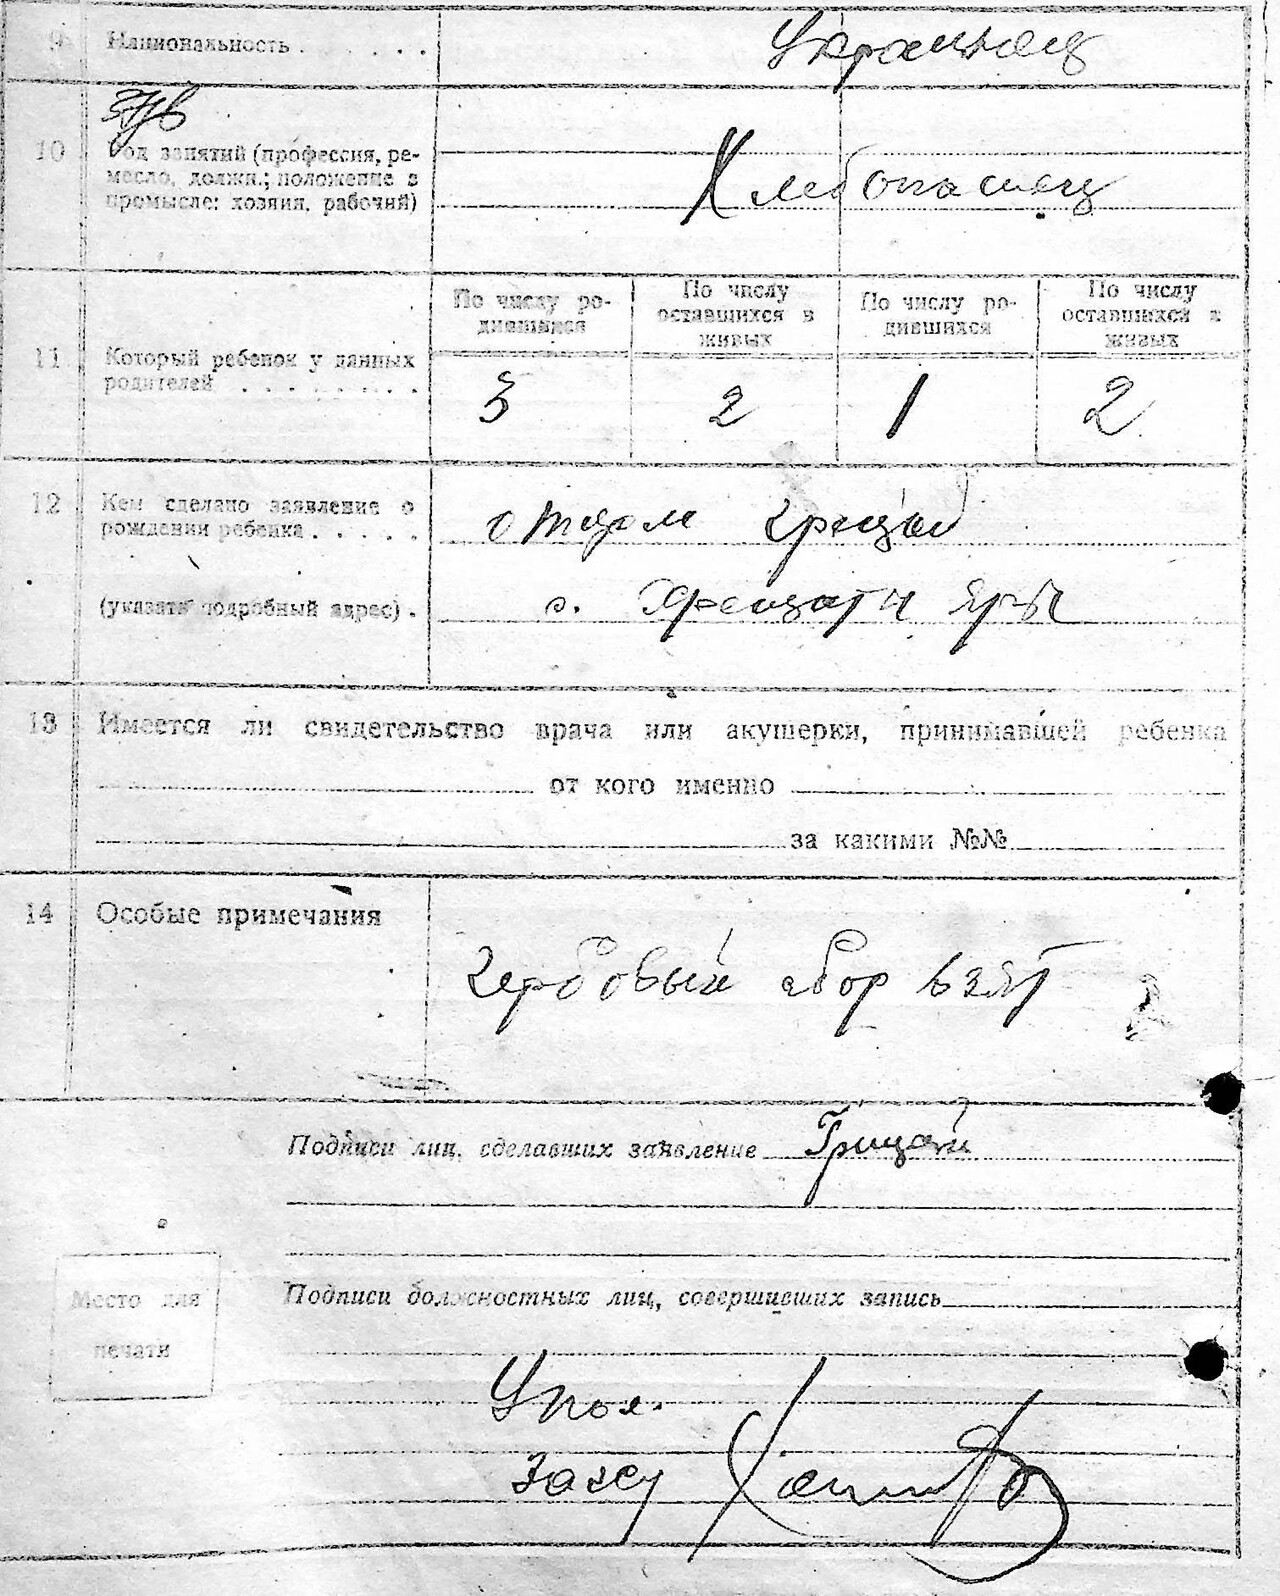 9 Национальность . . . . . . Украинец
10 Род занятий (профессия, ре-
месло, должн.; положение в
промысле: хозяин, рабочий)
Хлебопашец
По числу ро-
дившихся
По числу
оставшихся в
живых
По числу ро-
дившихся
По числу
оставшихся в
живых
11 Который ребенок у данных
родителей . . . . . . . .
3 2 1 2
12 Кем сделано заявление о
рождении ребенка . . . . .
отцом Грицай
(указать подробный адрес) . с. Хрещати Яры
13 Имеется ли свидетельство врача или акушерки, принимавшей ребенка
от кого именно
за какими №№
14 Особые примечания
Гербовый сбор взят
Подписи лиц, сделавших заявление Грицай
Подписи должностных лиц, совершивших запись
Место для
печати
Упол.
загсу